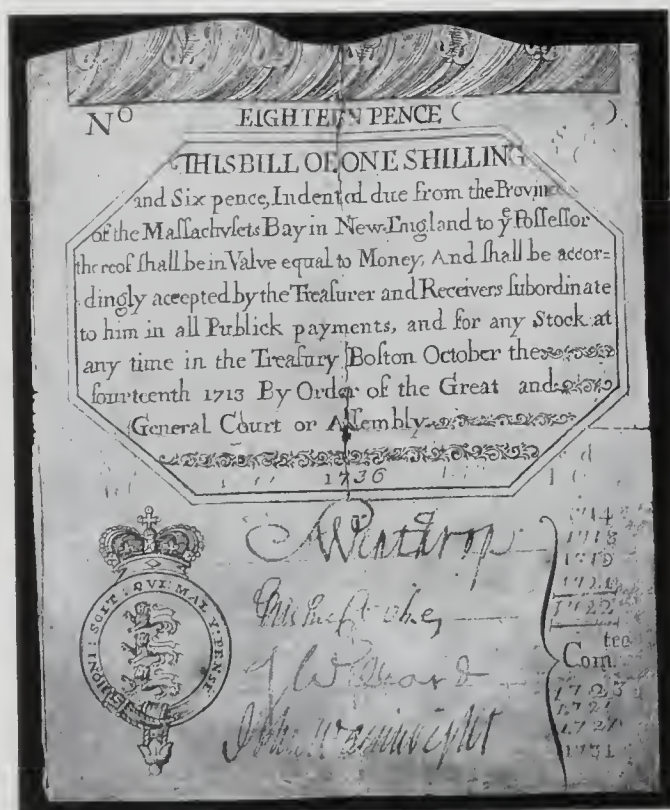 No EIGHTEEN PENCE ( )
THIS BILL OF ONE SHILLING
and Six pence, Indented due from the Province
of the Maſſachvſets Bay in New-England to yͤ Poſſeſſor
thereof ſhall be in Valve equal to Money, And ſhall be accor=
dingly accepted by the Treaſurer and Receivers ſubordinate
to him in all Publick payments, and for any Stock at
any time in the Treaſury Boſton October the
fourteenth 1713 By Order of the Great and
General Court or Aſſembly
1736
HONI : SOIT : QVI : MAL Y : PENSE
Winthrop
J Willard
John Wainwright
Com.tee
1714
1718
1719
1722
1731